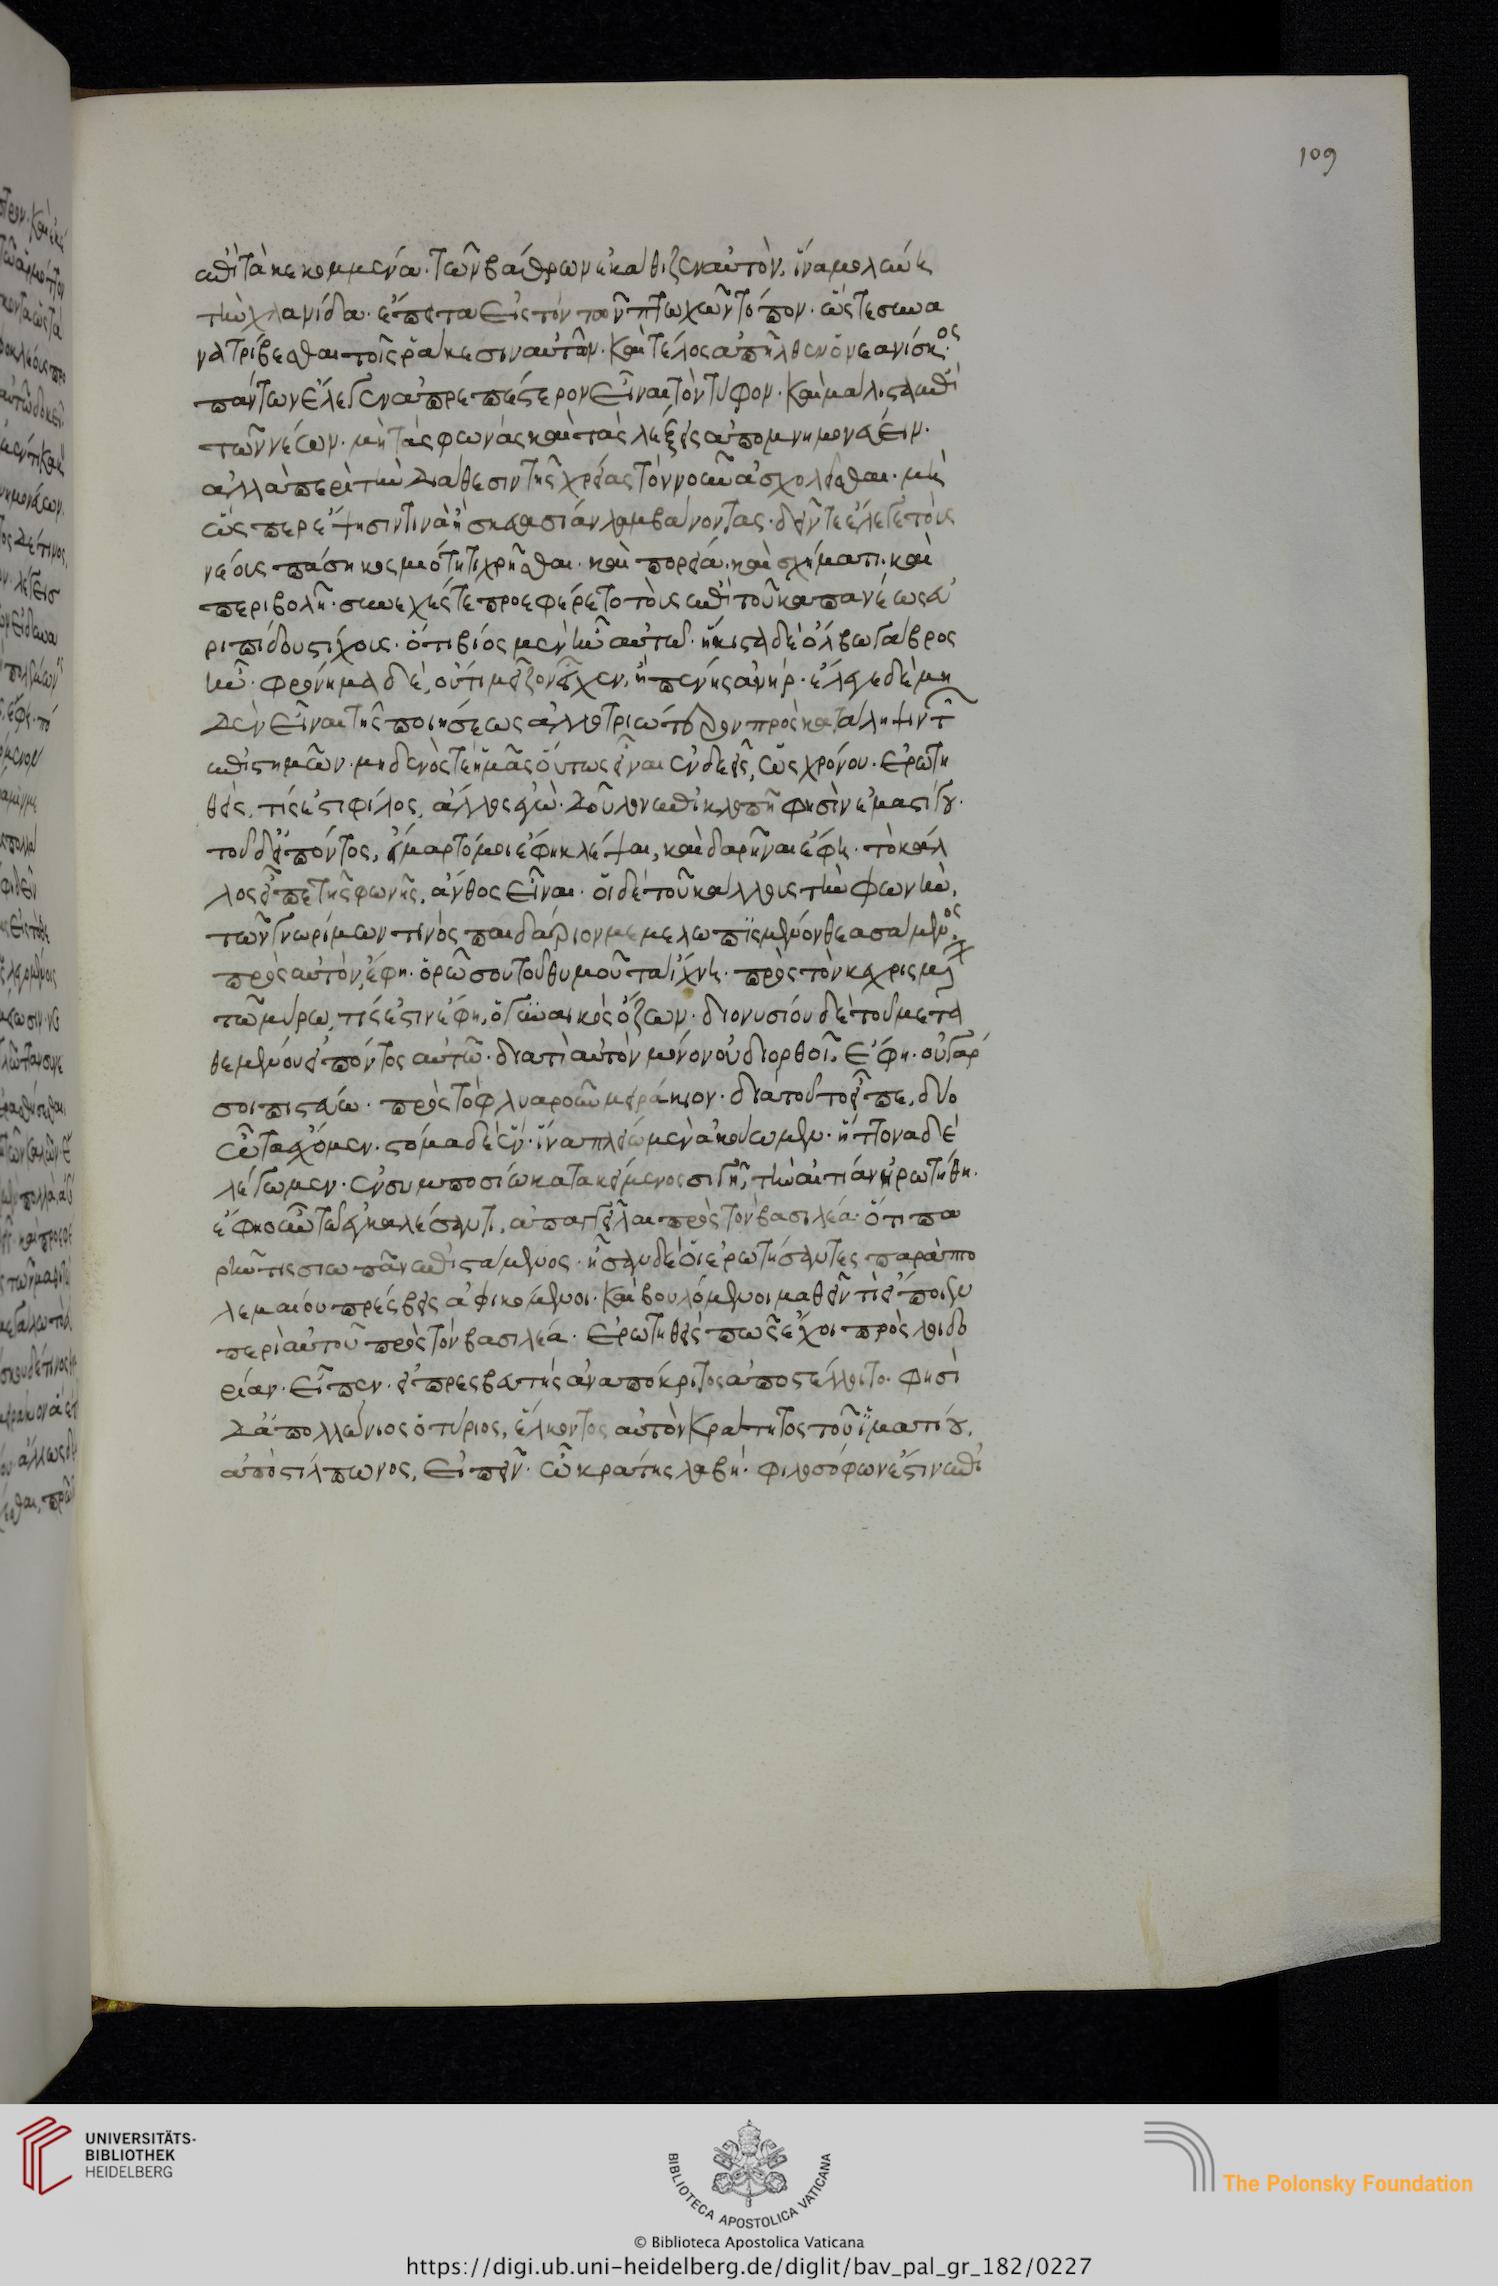 ἐπὶ τὰ κεκομμένα· τῶν βάθρων ἐκάθιζεν αὐτὸν, ἵνα μολύνη
τὴν χλανίδα· ἔπειτα εἰς τὸν τῶν πτωχῶν τόπον· ὥστε συνα
νατρίβεσθαι τοῖς ῥάκεσιν αὐτῶν· καὶ τέλος ἀπῆλθεν ὁ νεανίσκος·
πάντων ἔλεγεν ἀπρεπέστερον εἶναι τὸν τύφον· καὶ μάλιστα ἐπὶ
τῶν νέων· μὴ τὰς φωνὰς καὶ τὰς λέξεις ἀπομνημονεύειν·
ἀλλὰ περὶ τὴν διάθεσιν τῆς χρείας τὸν νοῦν ἀσχολεῖσθαι· μὴ
ὥσπερ ἕψησιν τινὰ ἢ σκευασίαν λαμβάνοντας· δεῖν τε ἔλεγε τοὺς
νέους πάση κοσμιότητι χρῆσθαι· καὶ πορεία· καὶ σχήματι· καὶ
περιβολῇ· συνεχές τε προεφέρετο τοὺς ἐπὶ τοῦ καπανέως εὐ
ριπίδου στίχους· ὅτι βίος μὲν ἦν αὐτῶ· ἥκιστα δὲ ὄλβω γαῦρος
ἦν· φρόνημα δὲ, οὔτι μεῖζον εἶχεν, ἢ πένης ἀνήρ· ἔλεγε δὲ μη
δὲν εἶναι τῆς ποιήσεως ἀλλοτριώτερον πρὸς κατάληψιν τῶν
ἐπιστημῶν· μηδενός τε ἡμᾶς οὕτως εἶναι ἐνδεεῖς, ὡς χρόνου· ἐρωτη
θεὶς, τίς ἐστι φίλος, ἄλλος ἐγώ· δοῦλον ἐπὶ κλοπῇ φησὶν ἐμαστίγου·
τοῦ δ' εἰπόντος, εἵμαρτό μοι ἔφη κλέψαι, καὶ δαρῆναι ἔφη· τὸ κάλ
λος εἶπε τῆς φωνῆς, ἄνθος εἶναι· οἱ δὲ τοῦ κάλλους τὴν φωνὴν,
τῶν γνωρίμων τινὸς παιδάριον μεμελωπισμένον θεασάμενος,
πρὸς αὐτὸν, ἔφη· ὁρῶ σου τοῦ θυμοῦ τὰ ἴχνη· πρὸς τὸν κεχρισμένον
τῶ μύρω, τίς ἐστιν ἔφη, ὁ γυναικὸς ὄζων· διονυσίου δὲ τοῦ μετα
θεμένου εἰπόντος αὐτῶ· διατὶ αὐτὸν μόνον οὐ διορθοῖ, ἔφη· οὐ γάρ
σοι πιστεύω· πρὸς τὸ φλυαροῦν μειράκιον· διὰ τοῦτο εἶπε, δύο
ὦτα ἔχομεν· στόμα δὲ ἓν· ἵνα πλείω μὲν ἀκούωμεν· ἥττονα δὲ
λέγωμεν· ἐν συμποσίω κατακείμενος σιγῇ, τὴν αἰτίαν ἠρωτήθη·
ἔφη οὖν τῶ ἐγκαλέσαντι, ἀπαγγεῖλαι πρὸς τὸν βασιλέα· ὅτι πα
ρῆν τις σιωπᾶν ἐπιστάμενος· ἦσαν δὲ οἱ ἐρωτήσαντες παρὰ πτο
λεμαίου πρέσβεις ἀφικόμενοι· καὶ βουλόμενοι μαθεῖν τί εἴποιεν
περὶ αὐτοῦ πρὸς τὸν βασιλέα· ἐρωτηθεὶς πῶς ἔχοι πρὸς λοιδο
ρίαν· εἶπεν· εἰ πρεσβευτὴς ἀναπόκριτος ἀποστέλλοιτο· φησὶ
δ' ἀπολλώνιος ὁ τύριος, ἕλκοντος αὐτὸν κράτητος τοῦ ἱματίου,
ἀπὸ στίλπωνος, εἰπεῖν· ὦ κράτης λαβὴ· φιλοσόφων ἐστὶν ἐπὶ
109
UNIVERSITÄTS-
BIBLIOTHEK
HEIDELBERG
BIBLIOTECA APOSTOLICA VATICANA
The Polonsky Foundation
© Biblioteca Apostolica Vaticana
https://digi.ub.uni-heidelberg.de/diglit/bav_pal_gr_182/0227